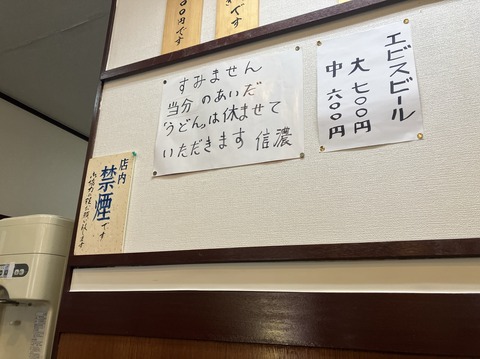 ００円です
です
すみません
当分 のあいだ
「うどん」は休ませて
いただきます 信濃
エビスビール
大 七〇〇円
中 六〇〇円
店内
禁煙です